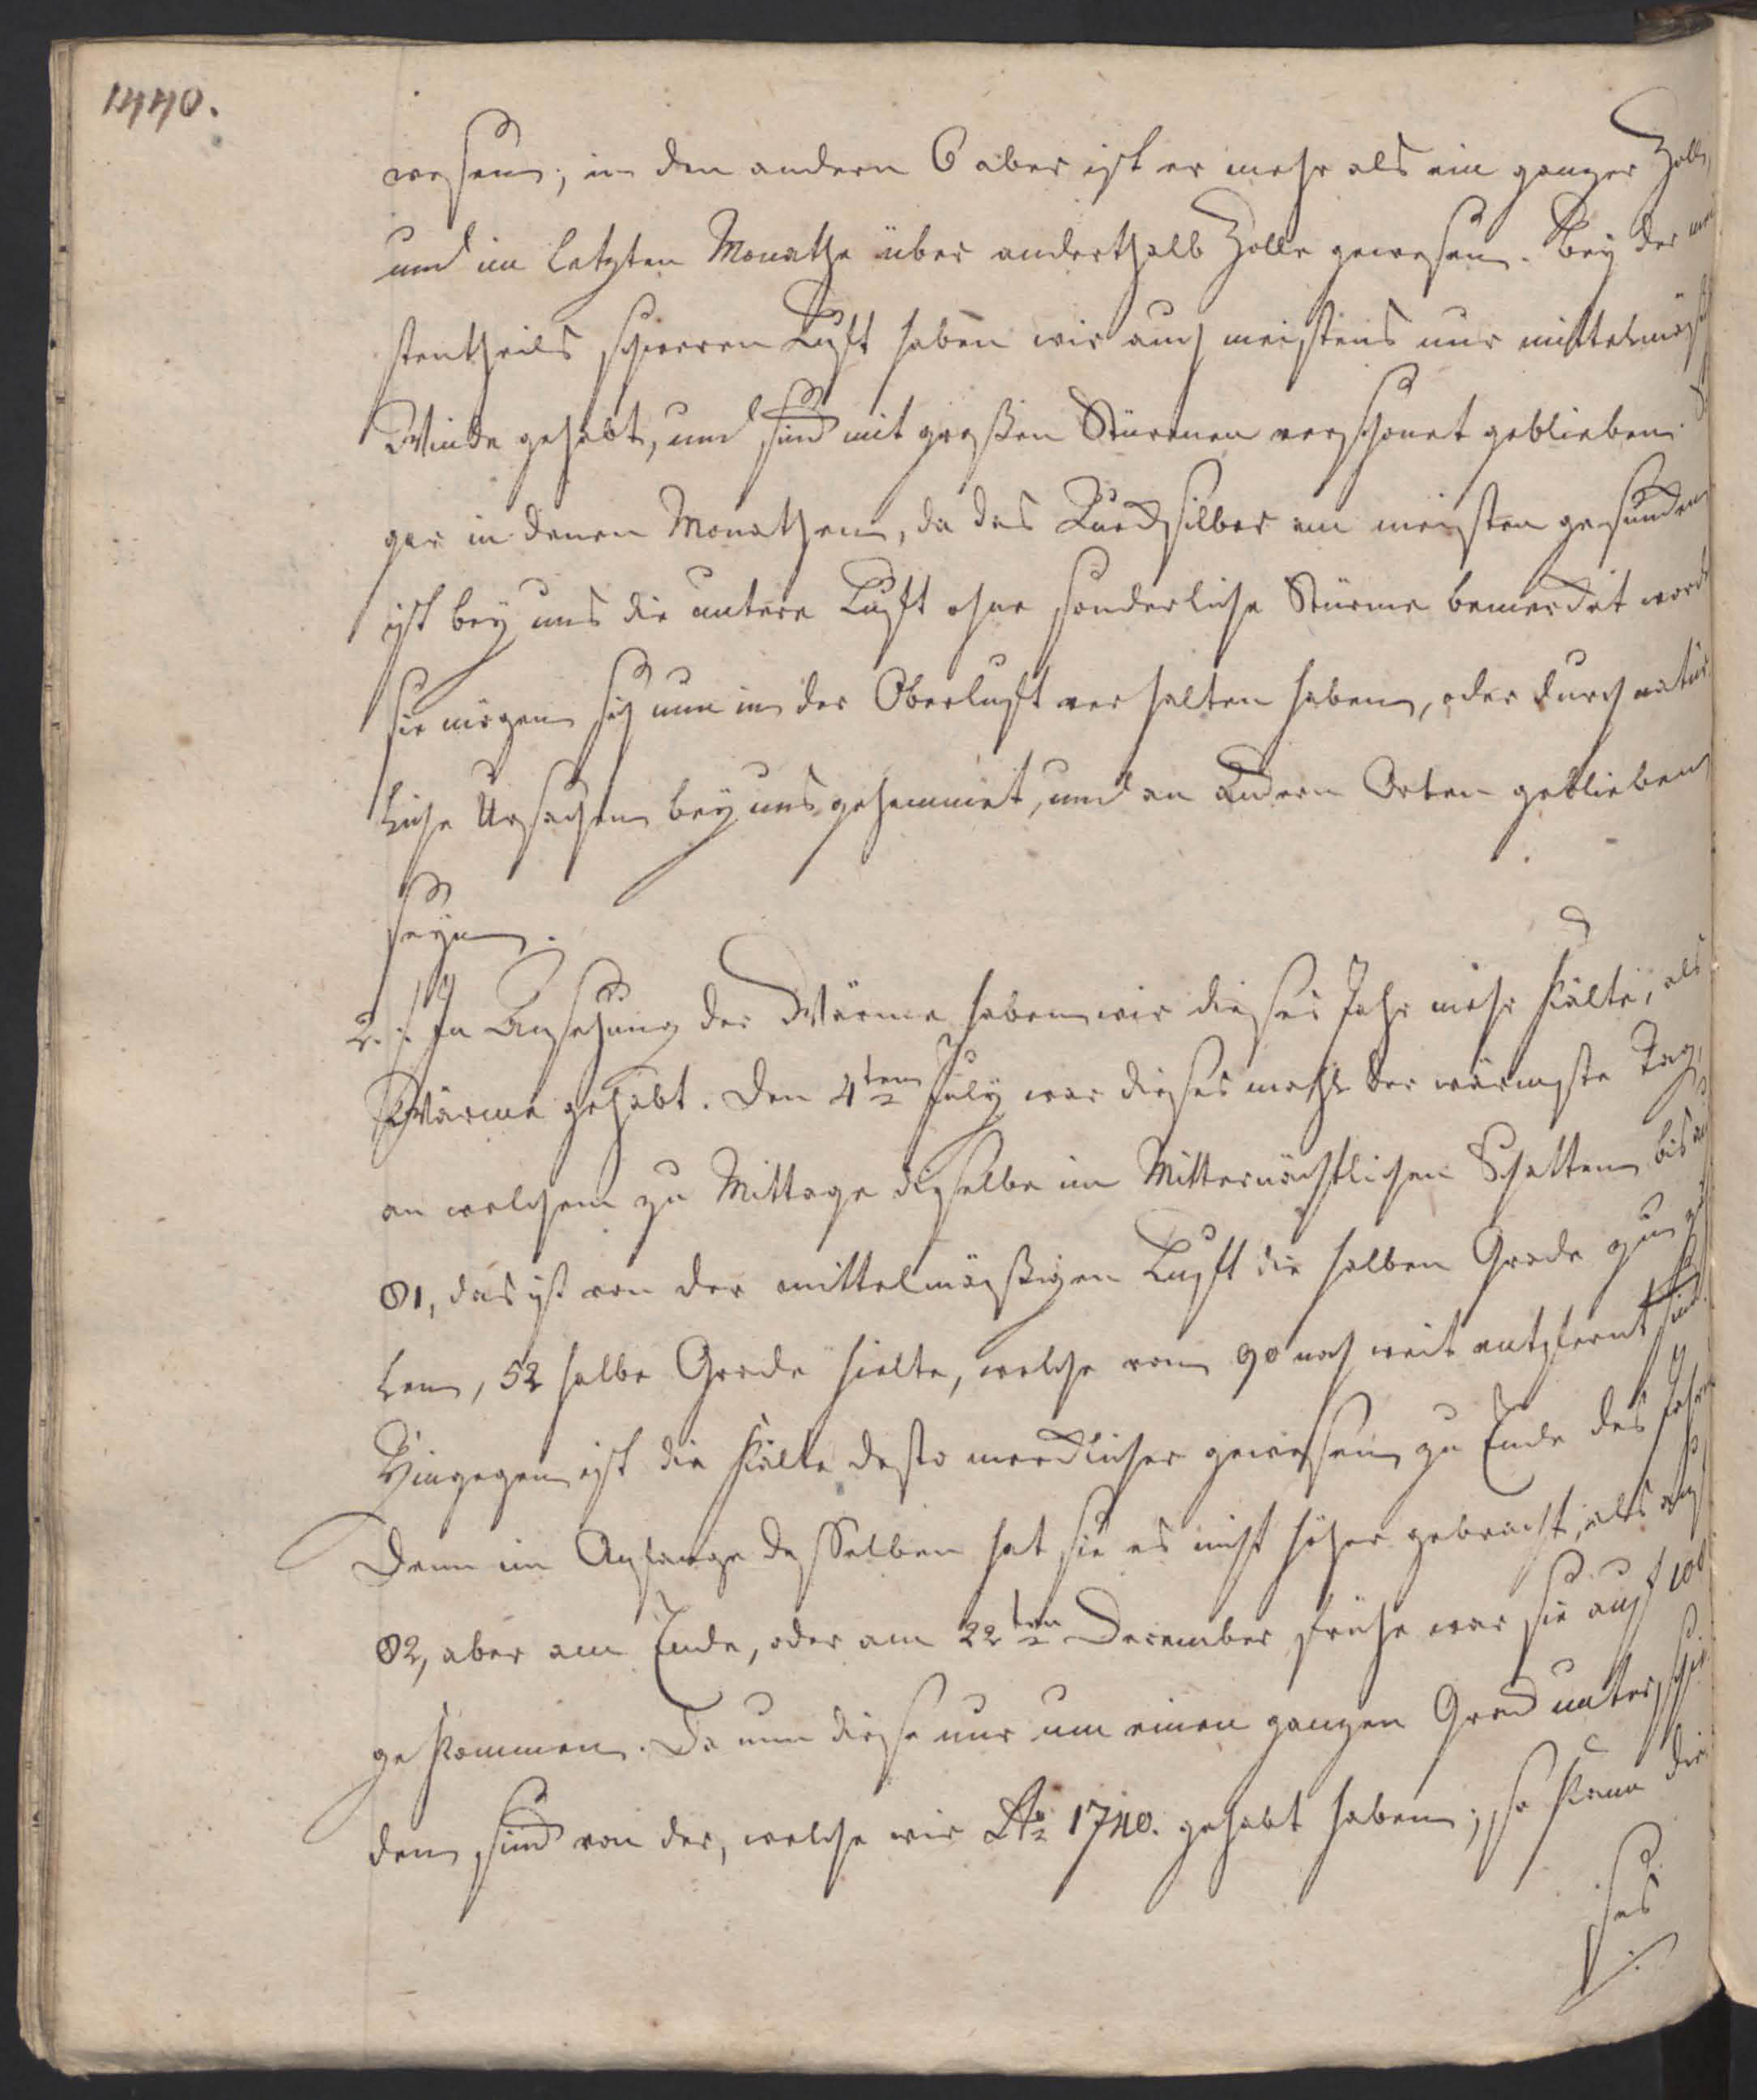 1440.
wesen; in den andern 6 aber ist er mehr als ein ganzer Zoll,
und im letzten Monathe über anderthalb Zolle gewesen. Bey der
stentheils schweren Luft haben wir auch meistens nur mittelmäß
Winde gehabt, und sind mit großen Stürmen verschonet geblieben.
gar in denen Monathen, da das Quecksilber am meisten gesuncken
ist bey uns die untere Lufft ohne sonderliche Stürme bemercket word
sie mögen sich nun in der Oberlufft verhalten haben, oder durch natür
liche Ursachen bey uns gehemmet, und an andern Orten geblieben
seyn.
2. In Ansehung der Wärme haben wir dieses Jahr mehr Kälte, als
Wärme gehabt. Den 4ten July war dieses mahl der wärmste Tag,
an welchem zu Mittage dieselbe im Mitternächtlichen Schatten bis
81, das ist von der mittelmäßigen Lufft die halben Grade zu
len, 52 halbe Grade hielte, welche vom 90 noch weit entfernt sind.
Hingegen ist die Kälte desto mercklicher gewesen zu Ende des Jahres
Denn im Anfange desselben hat sie es nicht höher gebracht, als auf
82, aber am Ende, oder am 22ten December frühe war sie auf 108
gekommen. Da nun diese nur um einen ganzen Grad unterschie
den sind von der, welche wir Ao 1740. gehabt haben; so kann die
ses